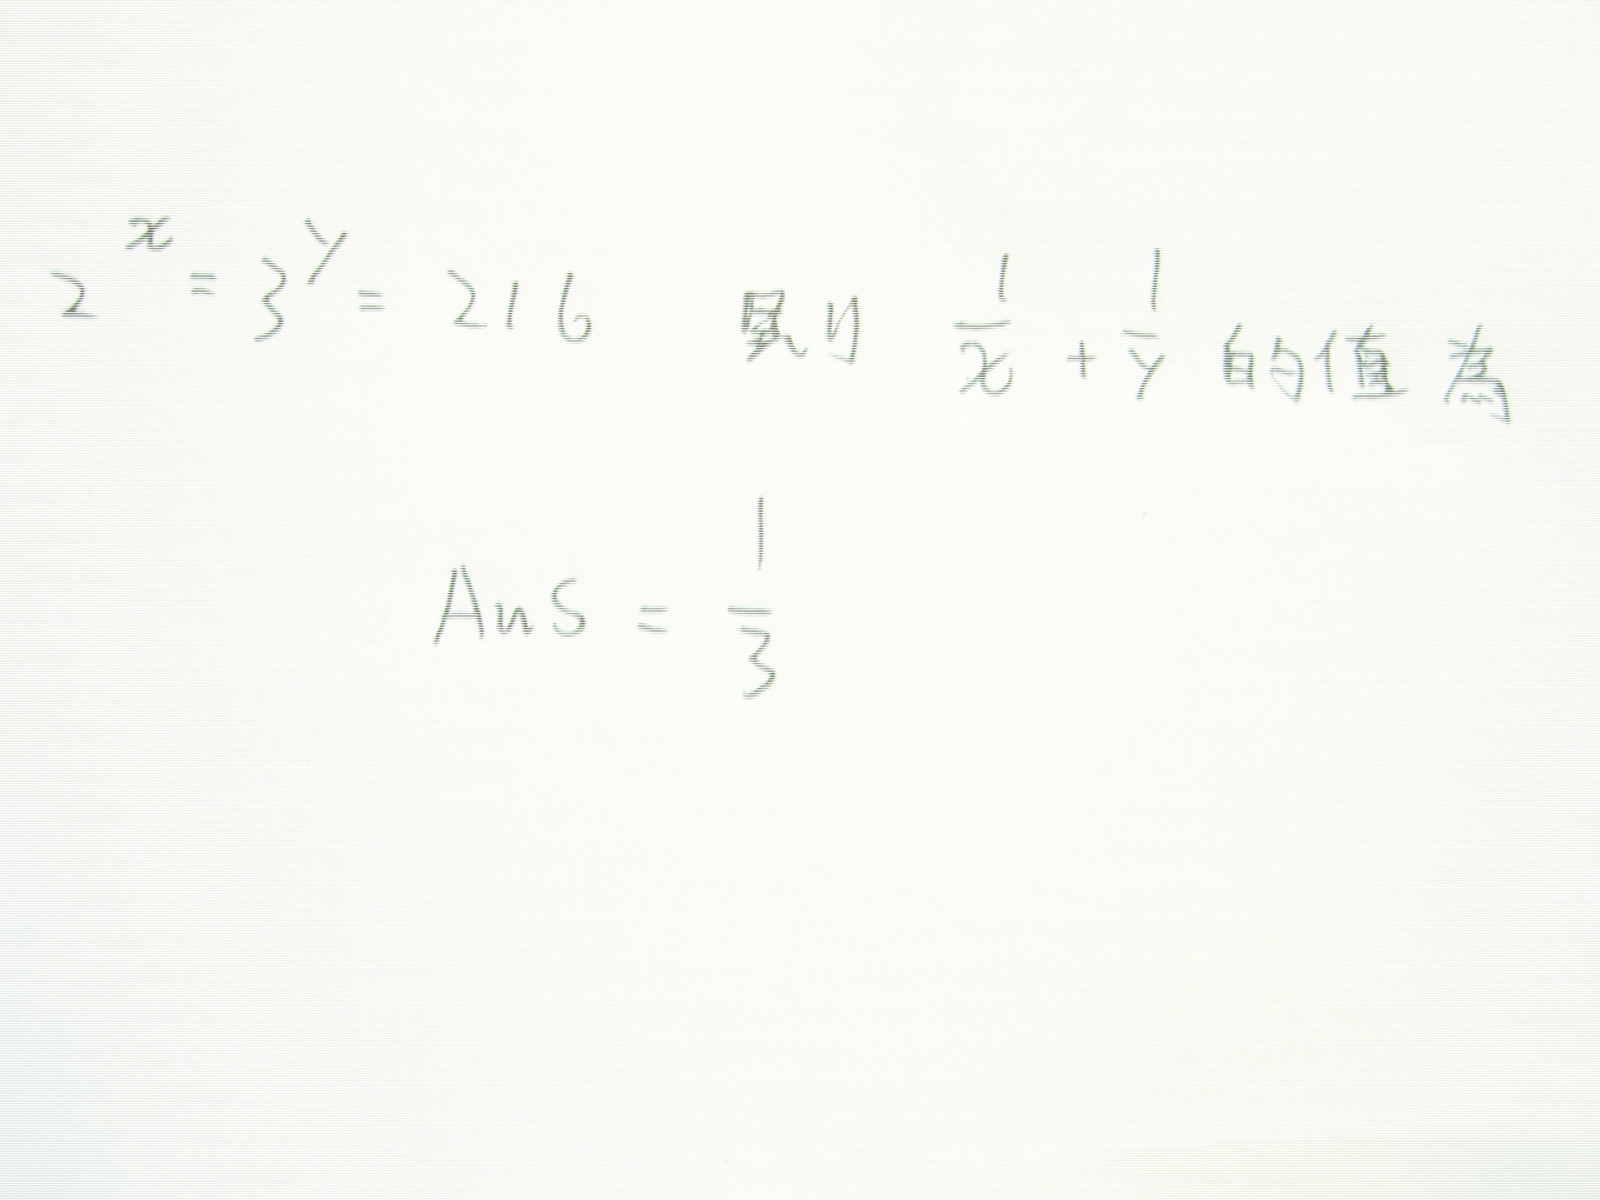 2^x = 3^y = 216 則 1/x + 1/y 的值為
Ans = 1/3